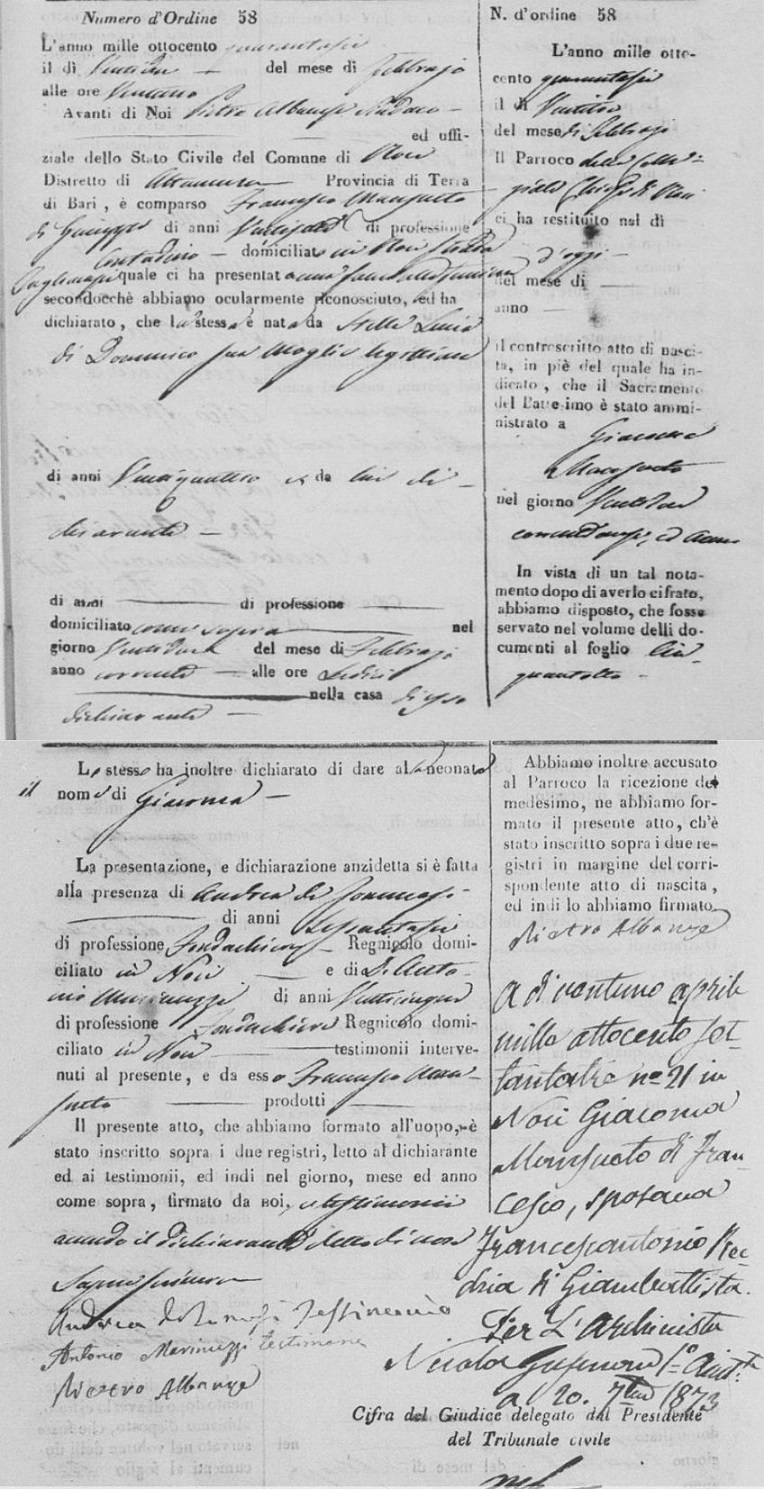 Numero d'Ordine 58
L'anno mille ottocento quarantasei
il dì Ventidue del mese di Febbrajo
alle ore
Avanti di Noi Pietro Albanese Sindaco
ed uffi-
ziale dello Stato Civile del Comune di Noci
Distretto di Altamura Provincia di Terra
di Bari, è comparso Francesco Mansueto
di Giuseppe di anni di professione
Contadino domiciliato in Noci Strada
quale ci ha presentato una
secondocchè abbiamo ocularmente riconosciuto, ed ha
dichiarato, che la stessa è nata da Stella Lucia
di Domenico sua Moglie legittima
di anni Ventiquattro e da lui di-
chiarante
di anni di professione
domiciliato come sopra nel
giorno Ventidue del mese di Febbrajo
anno corrente alle ore sedici
nella casa di esso
dichiarante
Lo stesso ha inoltre dichiarato di dare alla neonata
il nome di Giacoma
La presentazione, e dichiarazione anzidetta si è fatta
alla presenza di Andrea de Tommasi
di anni Sessantasei
di professione Fondachiere Regnicolo domi-
ciliato in Noci e di D. Anto-
nio Marinuzzi di anni Venticinque
di professione Fondachiere Regnicolo domi-
ciliato in Noci testimonii interve-
nuti al presente, e da esso Francesco Man-
sueto prodotti
Il presente atto, che abbiamo formato all'uopo, è
stato inscritto sopra i due registri, letto al dichiarante
ed ai testimonii, ed indi nel giorno, mese ed anno
come sopra, firmato da noi, e testimonii
avendo il dichiarante detto di non
saper scrivere
Andrea de Tomasi Testimonio
Antonio Marinuzzi testimone
Pietro Albanese
N. d'ordine 58
L'anno mille otto-
cento quarantasei
il di
del mese di Febbrajo
Il Parroco della Colle-
giata Chiesa di Noci
ci ha restituito nel dì
d'oggi
del mese di
anno
il controscritto atto di nasci-
ta, in piè del quale ha in-
dicato, che il Sacramento
del Battesimo è stato ammi-
nistrato a Giacoma
Mansueto
nel giorno Ventidue
corrente mese, ed anno
In vista di un tal nota-
mento dopo di averlo cifrato,
abbiamo disposto, che fosse
servato nel volume delli do-
cumenti al foglio Cin-
quantotto
Abbiamo inoltre accusato
al Parroco la ricezione del
medesimo, ne abbiamo for-
mato il presente atto, ch'è
stato inscritto sopra i due re-
gistri in margine del corri-
spondente atto di nascita,
ed indi lo abbiamo firmato
Pietro Albanese
A dì ventuno aprile
mille ottocento set-
tantatre n.º 21 in
Noci Giacoma
Mansueto di Fran-
cesco, sposava
Francescantonio
di Giambattista.
Per L'Archivista
Nicola
a 20. 7bre 1873
Cifra del Giudice delegato dal Presidente
del Tribunale civile